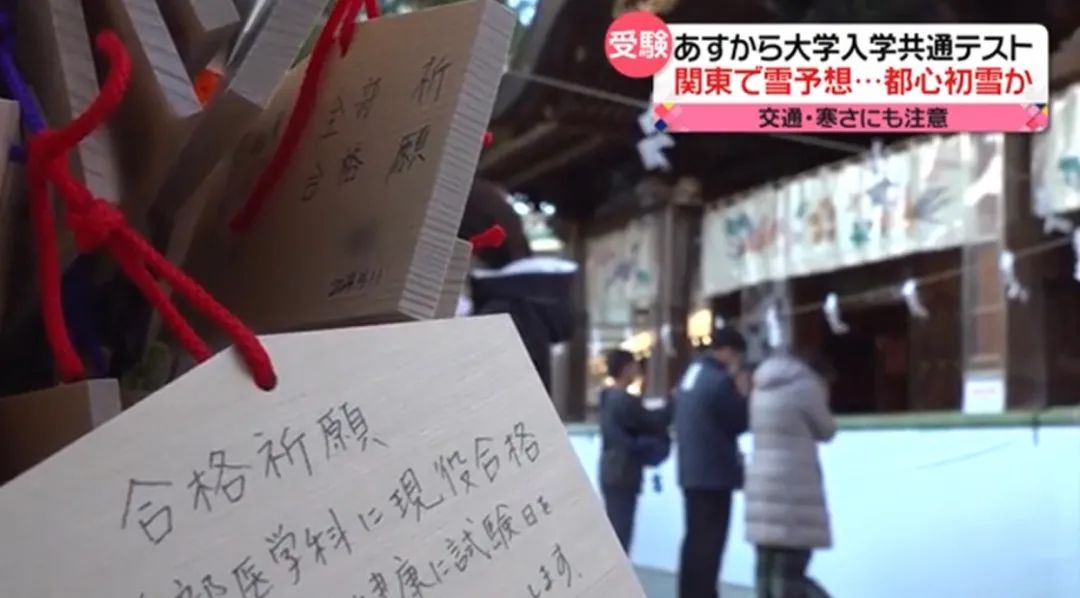 受験
あすから大学入学共通テスト
関東で雪予想…都心初雪か
交通・寒さにも注意
祈願
合格
合格祈願
部医学科に現役合格
健康に試験日を
します。